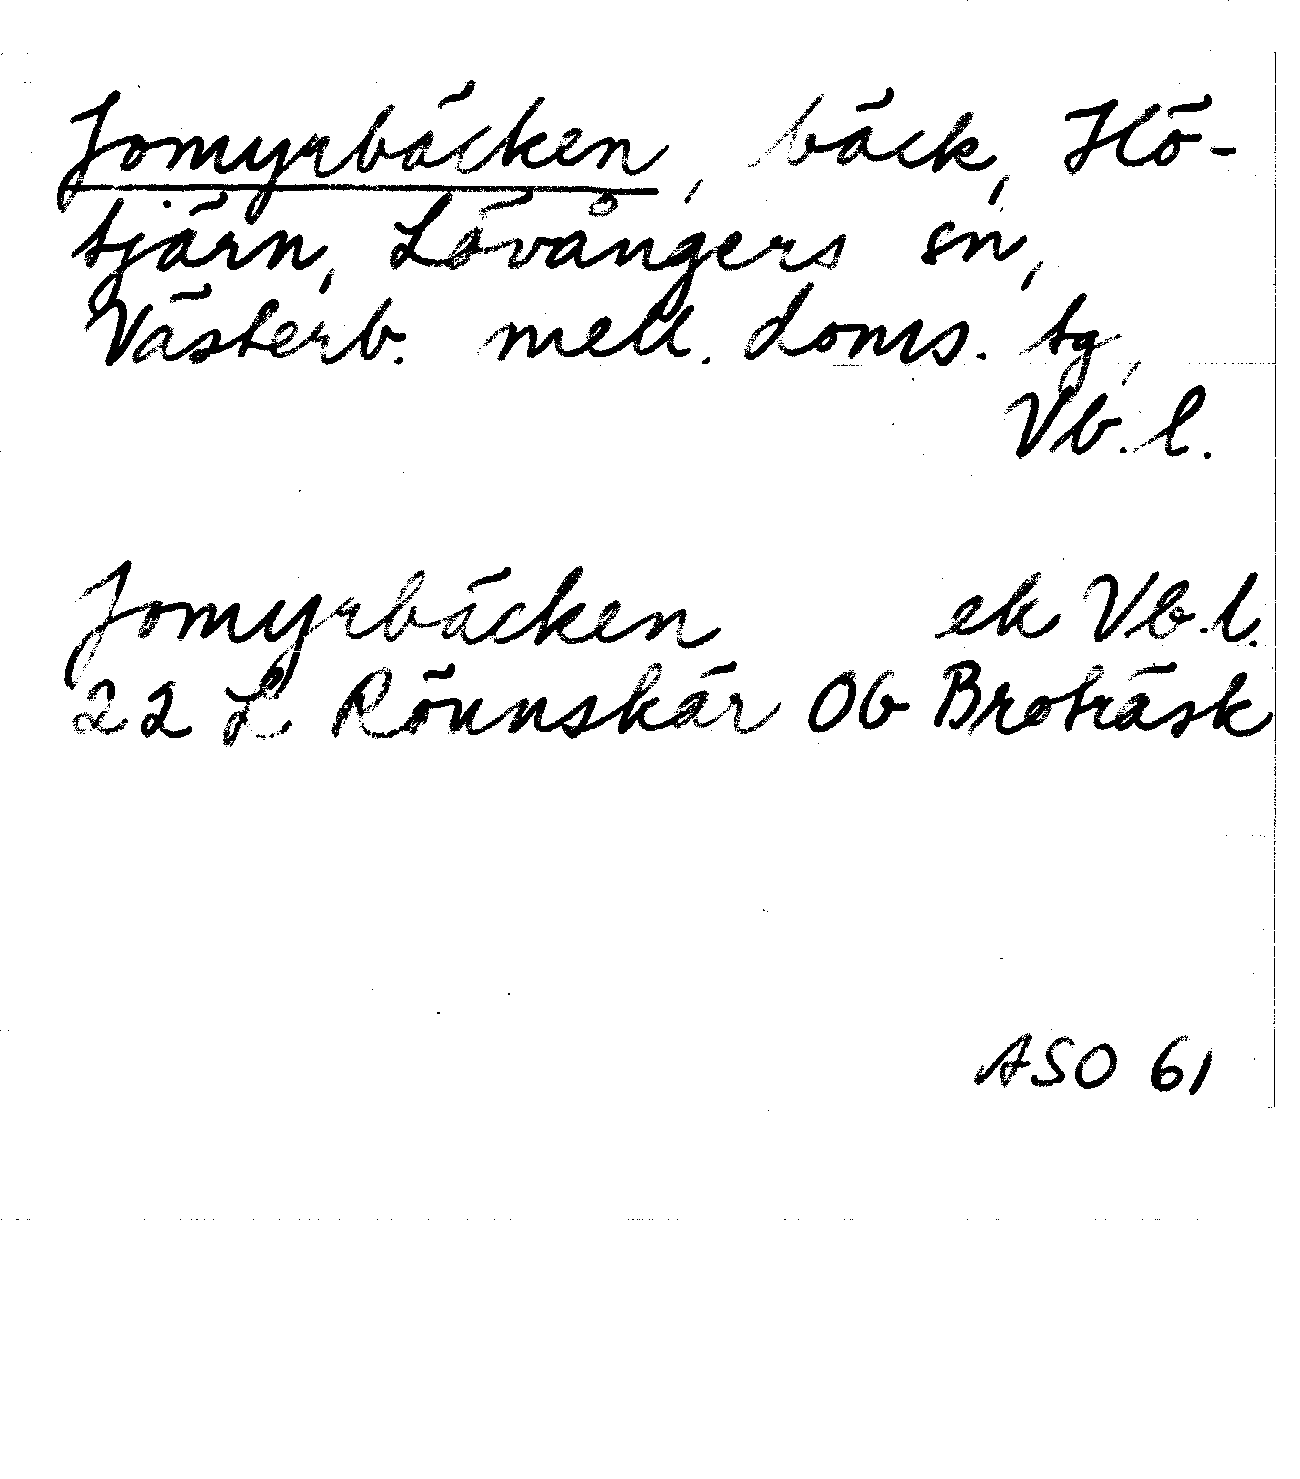 Jomyrbäcken, bäck, Hö-
tjärn, Lövångers sn,
Västerb. mell. doms. tg,
Vb. l.
Jomyrbäcken ek Vb. l.
22 L Rönnskär 0b Broträsk
ASO 61